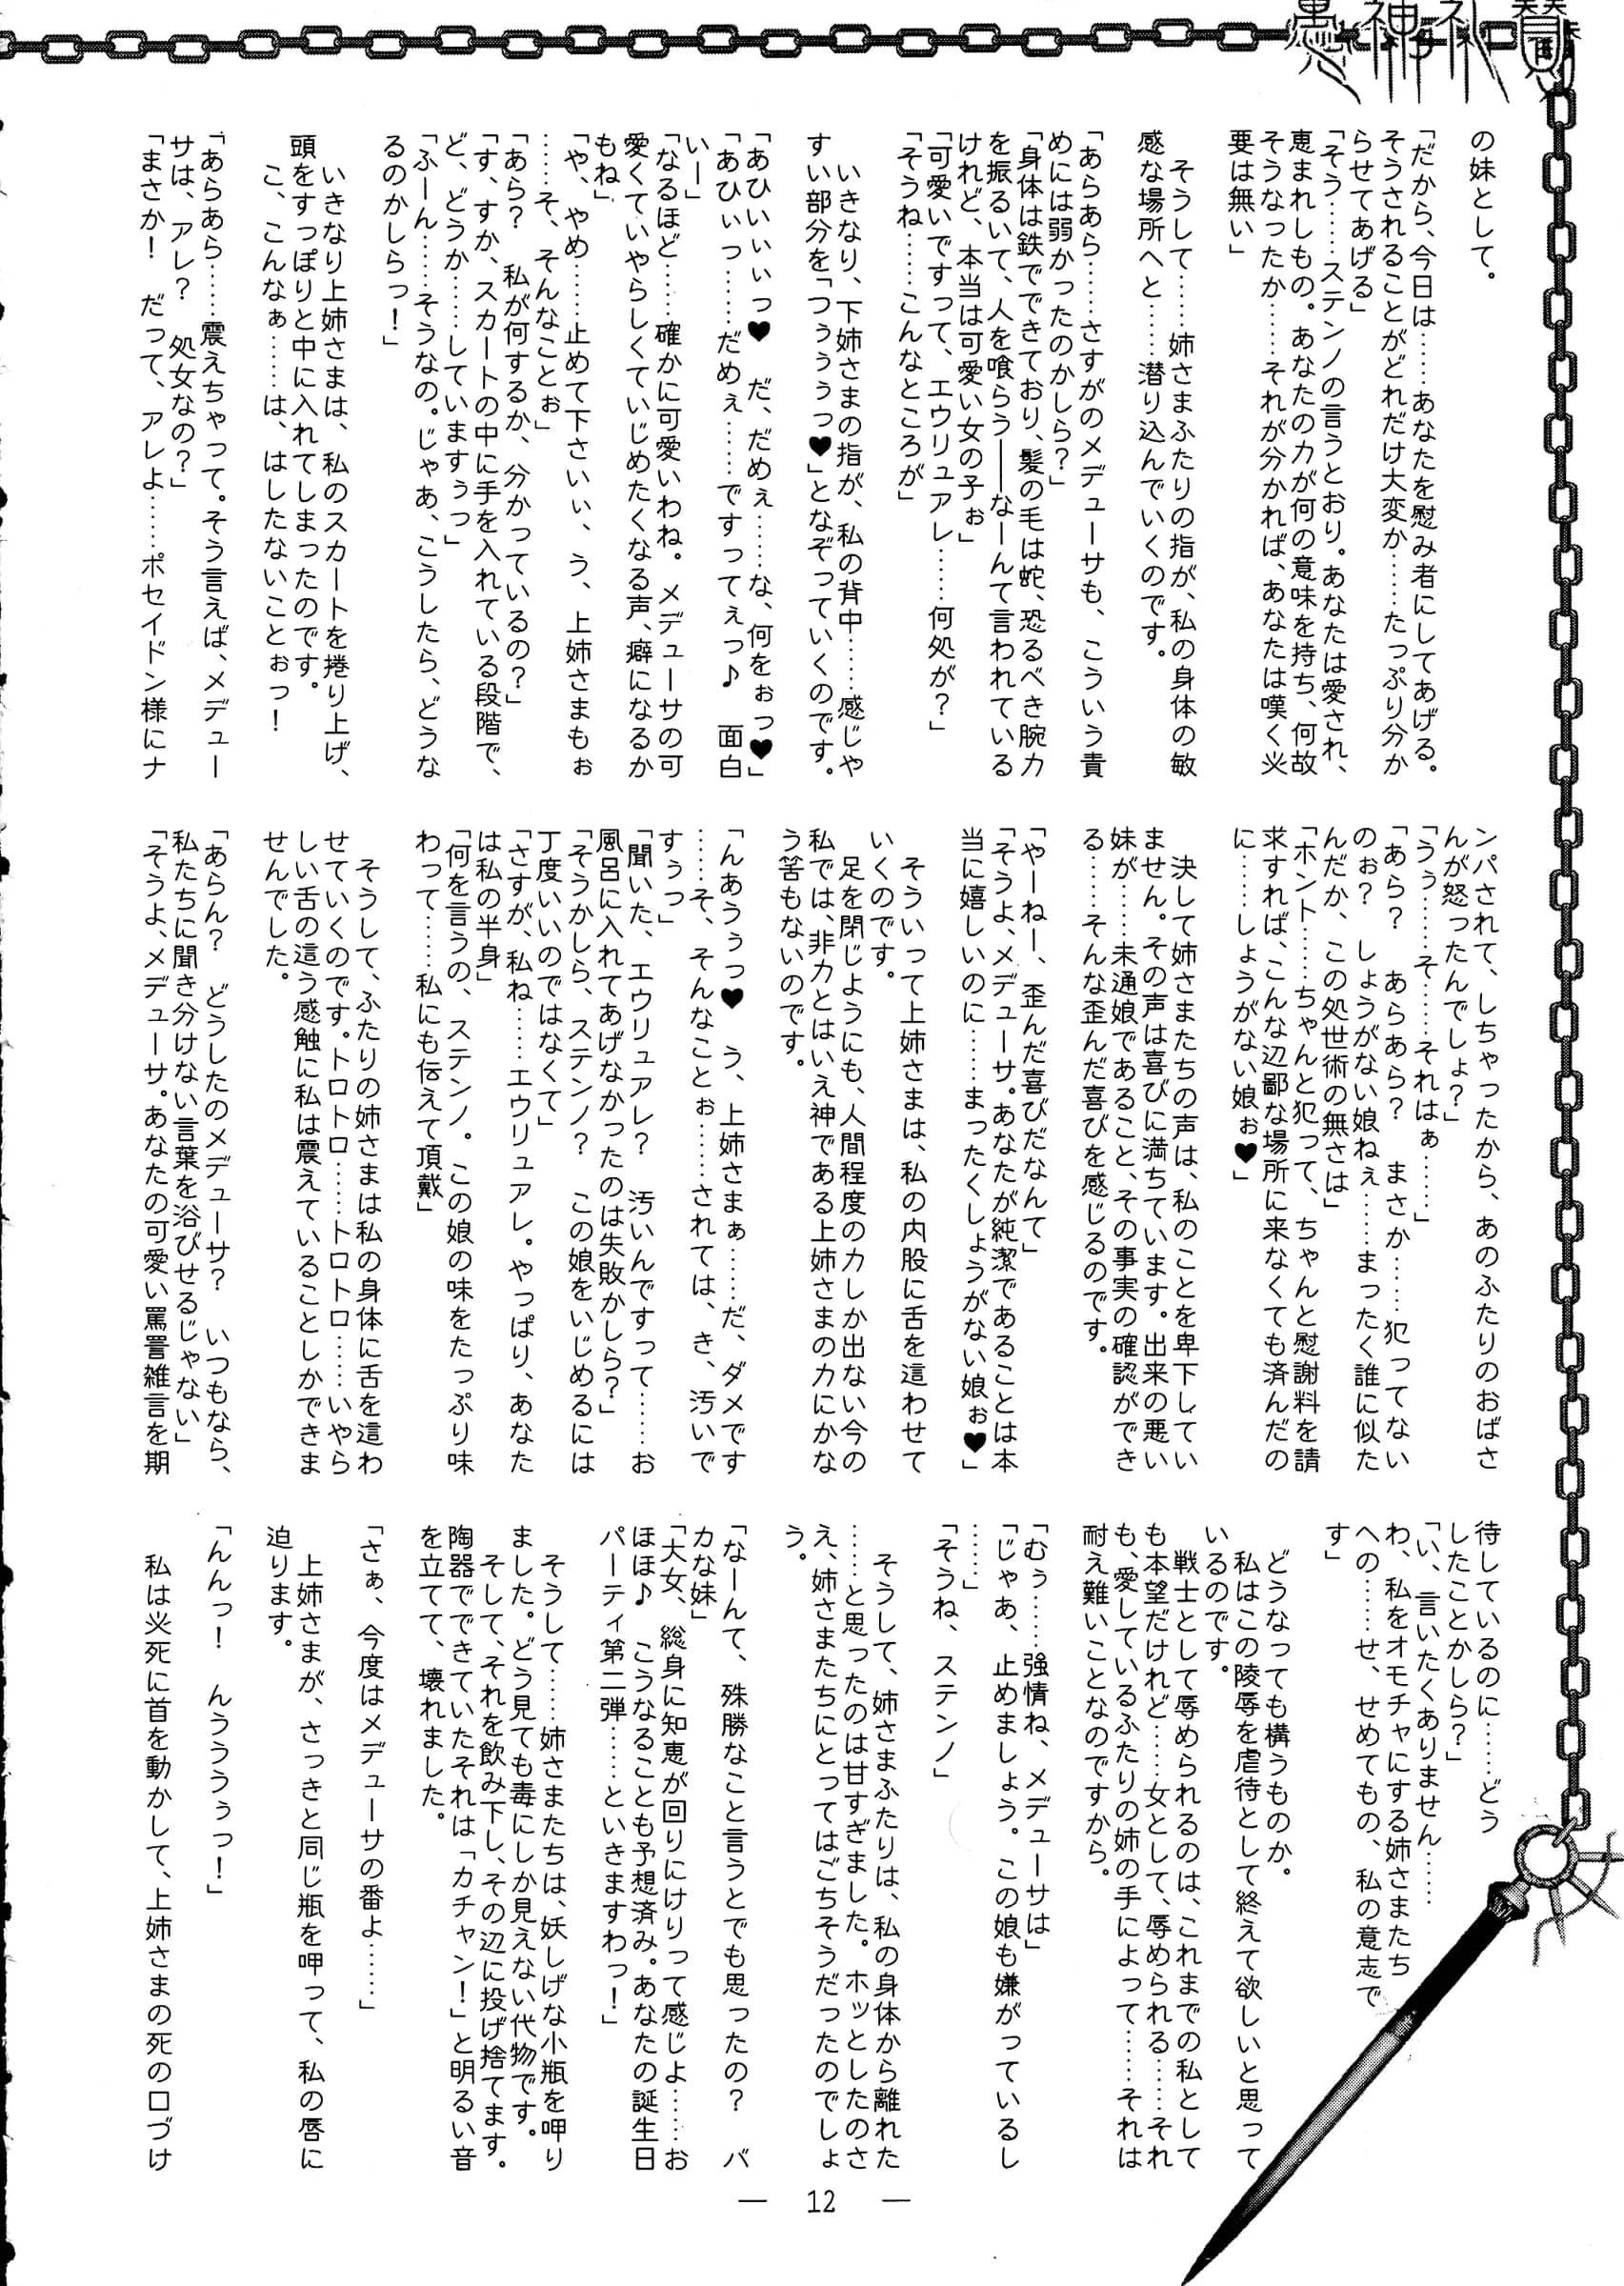 愚神礼賛
の妹として。
「だから、今日は……あなたを慰み者にしてあげる。
そうされることがどれだけ大変か……たっぷり分か
らせてあげる」
「そう……ステンノの言うとおり。あなたは愛され、
恵まれしもの。あなたの力が何の意味を持ち、何故
そうなったか……それが分かれば、あなたは嘆く必
要は無い」
そうして……姉さまふたりの指が、私の身体の敏
感な場所へと……潜り込んでいくのです。
「あらあら……さすがのメデューサも、こういう責
めには弱かったのかしら？」
「身体は鉄でできており、髪の毛は蛇、恐るべき腕力
を振るいて、人を喰らう――なーんて言われている
けれど、本当は可愛い女の子ぉ」
「可愛いですって、エウリュアレ……何処が？」
「そうね……こんなところが」
いきなり、下姉さまの指が、私の背中……感じや
すい部分を「つぅぅぅっ♥」となぞっていくのです。
「あひぃぃぃっ♥　だ、だめぇ……な、何をぉっ♥」
「あひぃっ……だめぇ……ですってぇっ♪　面白
いー」
「なるほど……確かに可愛いわね。メデューサの可
愛くていやらしくていじめたくなる声、癖になるか
もね」
「や、やめ……止めて下さいぃ、う、上姉さまもぉ
……そ、そんなことぉ」
「あら？　私が何するか、分かっているの？」
「す、すか、スカートの中に手を入れている段階で、
ど、どうか……していますぅっ」
「ふーん……そうなの。じゃあ、こうしたら、どうな
るのかしらっ！」
いきなり上姉さまは、私のスカートを捲り上げ、
頭をすっぽりと中に入れてしまったのです。
こ、こんなぁ……は、はしたないことぉっ！
「あらあら……震えちゃって。そう言えば、メデュー
サは、アレ？　処女なの？」
「まさか！　だって、アレよ……ポセイドン様にナ
ンパされて、しちゃったから、あのふたりのおばさ
んが怒ったんでしょ？」
「うぅ……そ……それはぁ……」
「あら？　あらあら？　まさか……犯ってない
のぉ？　しょうがない娘ねぇ……まったく誰に似た
んだか、この処世術の無さは」
「ホント……ちゃんと犯って、ちゃんと慰謝料を請
求すれば、こんな辺鄙な場所に来なくても済んだの
に……しょうがない娘ぉ♥」
決して姉さまたちの声は、私のことを卑下してい
ません。その声は喜びに満ちています。出来の悪い
妹が……未通娘であること、その事実の確認ができ
る……そんな歪んだ喜びを感じるのです。
「やーねー、歪んだ喜びだなんて」
「そうよ、メデューサ。あなたが純潔であることは本
当に嬉しいのに……まったくしょうがない娘ぉ♥」
そういって上姉さまは、私の内股に舌を這わせて
いくのです。
足を閉じようにも、人間程度の力しか出ない今の
私では、非力とはいえ神である上姉さまの力にかな
う筈もないのです。
「んあうぅっ♥　う、上姉さまぁ……だ、ダメです
……そ、そんなことぉ……されては、き、汚いで
すぅっ」
「聞いた、エウリュアレ？　汚いんですって……お
風呂に入れてあげなかったのは失敗かしら？」
「そうかしら、ステンノ？　この娘をいじめるには
丁度いいのではなくて」
「さすが、私ね……エウリュアレ。やっぱり、あなた
は私の半身」
「何を言うの、ステンノ。この娘の味をたっぷり味
わって……私にも伝えて頂戴」
そうして、ふたりの姉さまは私の身体に舌を這わ
せていくのです。トロトロ……トロトロ……いやら
しい舌の這う感触に私は震えていることしかできま
せんでした。
「あらん？　どうしたのメデューサ？　いつもなら、
私たちに聞き分けない言葉を浴びせるじゃない」
「そうよ、メデューサ。あなたの可愛い罵詈雑言を期
待しているのに……どう
したことかしら？」
「い、言いたくありません……
わ、私をオモチャにする姉さまたち
への……せ、せめてもの、私の意志で
す」
どうなっても構うものか。
私はこの陵辱を虐待として終えて欲しいと思って
いるのです。
戦士として辱められるのは、これまでの私として
も本望だけれど……女として、辱められる……それ
も、愛しているふたりの姉の手によって……それは
耐え難いことなのですから。
「むぅ……強情ね、メデューサは」
「じゃあ、止めましょう。この娘も嫌がっているし
……」
「そうね、ステンノ」
そうして、姉さまふたりは、私の身体から離れた
……と思ったのは甘すぎました。ホッとしたのさ
え、姉さまたちにとってはごちそうだったのでしょ
う。
「なーんて、殊勝なこと言うとでも思ったの？　バ
カな妹」
「大女、総身に知恵が回りにけりって感じよ……お
ほほ♪　こうなることも予想済み。あなたの誕生日
パーティ第二弾……といきますわっ！」
そうして……姉さまたちは、妖しげな小瓶を呷り
ました。どう見ても毒にしか見えない代物です。
そして、それを飲み下し、その辺に投げ捨てます。
陶器でできていたそれは「カチャン！」と明るい音
を立てて、壊れました。
「さぁ、今度はメデューサの番よ……」
上姉さまが、さっきと同じ瓶を呷って、私の唇に
迫ります。
「んんっ！　んうううぅっ！」
私は必死に首を動かして、上姉さまの死の口づけ
― 12 ―